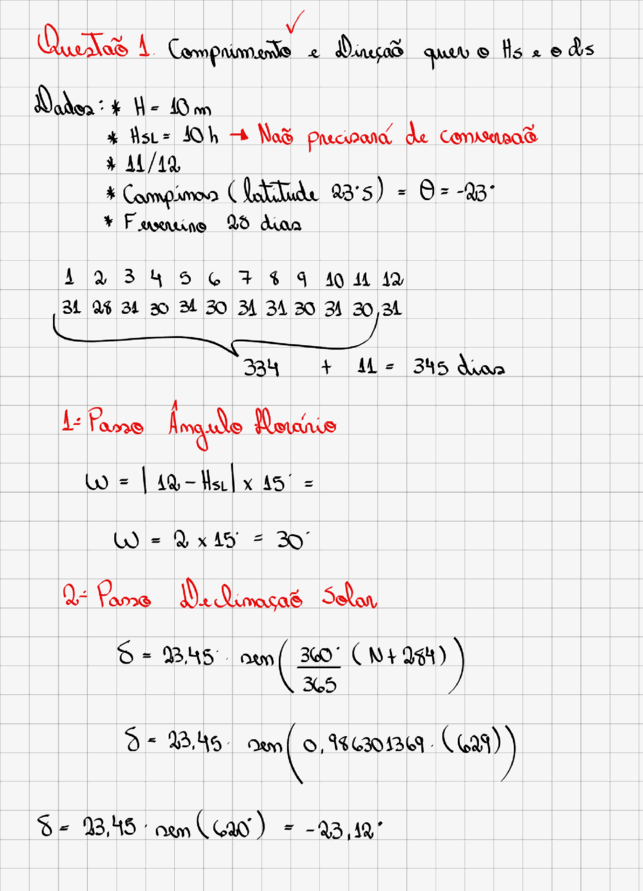 Questão 1. Comprimento e Direção quer o Hs e o ds
Dados: * H = 10 m
* HSL = 10 h → Não precisará de conversão
* 11/12
* Campinas (latitude 23°S) = θ = -23°
* Fevereiro 28 dias
1 2 3 4 5 6 7 8 9 10 11 12
31 28 31 30 31 30 31 31 30 31 30 31
334 + 11 = 345 dias
1º Passo Ângulo Horário
ω = | 12 - HSL | x 15° =
ω = 2 x 15° = 30°
2º Passo Declinação Solar
δ = 23,45 · sen ( 360° / 365 ( N + 284 ) )
δ = 23,45 · sen ( 0,986301369 · ( 629 ) )
δ = 23,45 · sen ( 620° ) = -23,12°